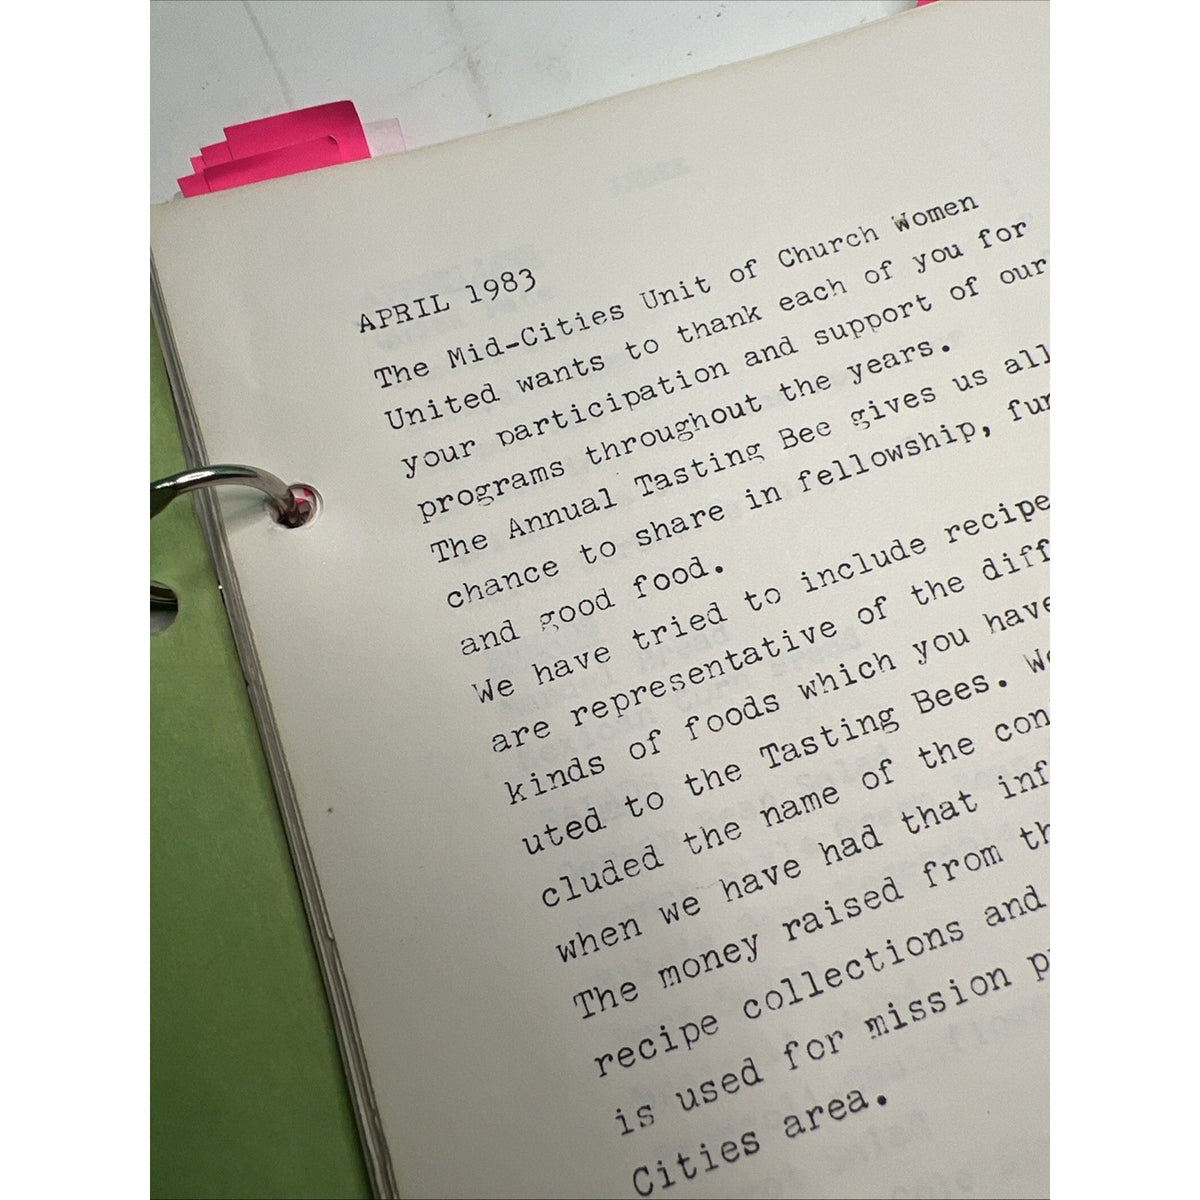 APRIL 1983
The Mid-Cities Unit of Church Women
United wants to thank each of you for
your participation and support of our
programs throughout the years.
The Annual Tasting Bee gives us all
chance to share in fellowship, fun
and good food.
We have tried to include recipe
are representative of the diff
kinds of foods which you have
uted to the Tasting Bees. We
cluded the name of the con
when we have had that inf
The money raised from th
recipe collections and
is used for mission p
Cities area.